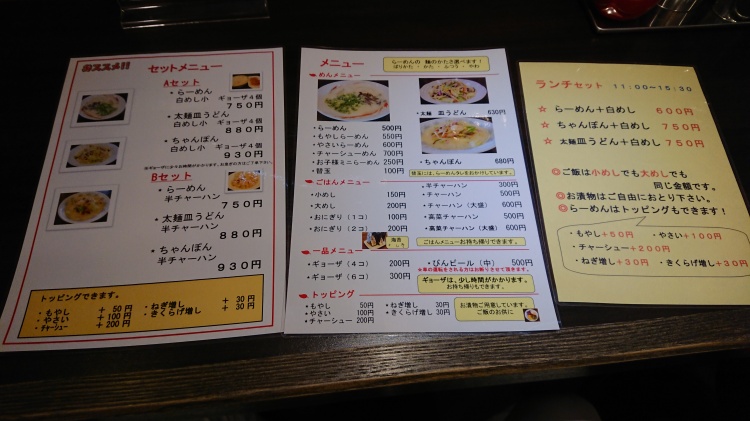 おススメ!! セットメニュー
Aセット
・らーめん
白めし小 ギョーザ4個
750円
・太麺皿うどん
白めし小 ギョーザ4個
880円
・ちゃんぽん
白めし小 ギョーザ4個
930円
Bセット
・らーめん
半チャーハン
750円
・太麺皿うどん
半チャーハン
880円
・ちゃんぽん
半チャーハン
930円
トッピングできます。
・もやし +50円
・やさい +100円
・チャーシュー +200円
・ねぎ増し +30円
・きくらげ増し +30円
メニュー
らーめんの 麺のかたさ選べます!
ばりかた ・ かた ・ ふつう ・ やわ
めんメニュー
・らーめん 500円
・もやしらーめん 550円
・やさいらーめん 600円
・チャーシューめん 700円
・お子様ミニらーめん 250円
・替玉 100円
・太麺 皿うどん 630円
・ちゃんぽん 680円
替玉には、らーめんタレをおかけしています。
ごはんメニュー
・小めし 150円
・大めし 200円
・おにぎり(1コ) 100円
・おにぎり(2コ) 200円
・半チャーハン 300円
・チャーハン 500円
・チャーハン(大盛) 600円
・高菜チャーハン 500円
・高菜チャーハン(大盛) 600円
ごはんメニューお持ち帰りできます。
一品メニュー
・ギョーザ(4コ) 200円
・ギョーザ(6コ) 300円
・びんビール(中) 500円
※車の運転をされる方はお断りさせて頂きます。
ギョーザは、少し時間がかかります。
お持ち帰りもできます。
トッピング
・もやし 50円
・やさい 100円
・チャーシュー 200円
・ねぎ増し 30円
・きくらげ増し 30円
お漬物ご用意しています。
ご飯のお供に
ランチセット 11:00~15:30
☆ らーめん+白めし 600円
☆ ちゃんぽん+白めし 750円
☆ 太麺皿うどん+白めし 750円
◎ご飯は小めしでも大めしでも
同じ金額です。
◎お漬物はご自由におとり下さい。
◎らーめんはトッピングもできます!
・もやし+50円 ・やさい+100円
・チャーシュー+200円
・ねぎ増し+30円 ・きくらげ増し+30円